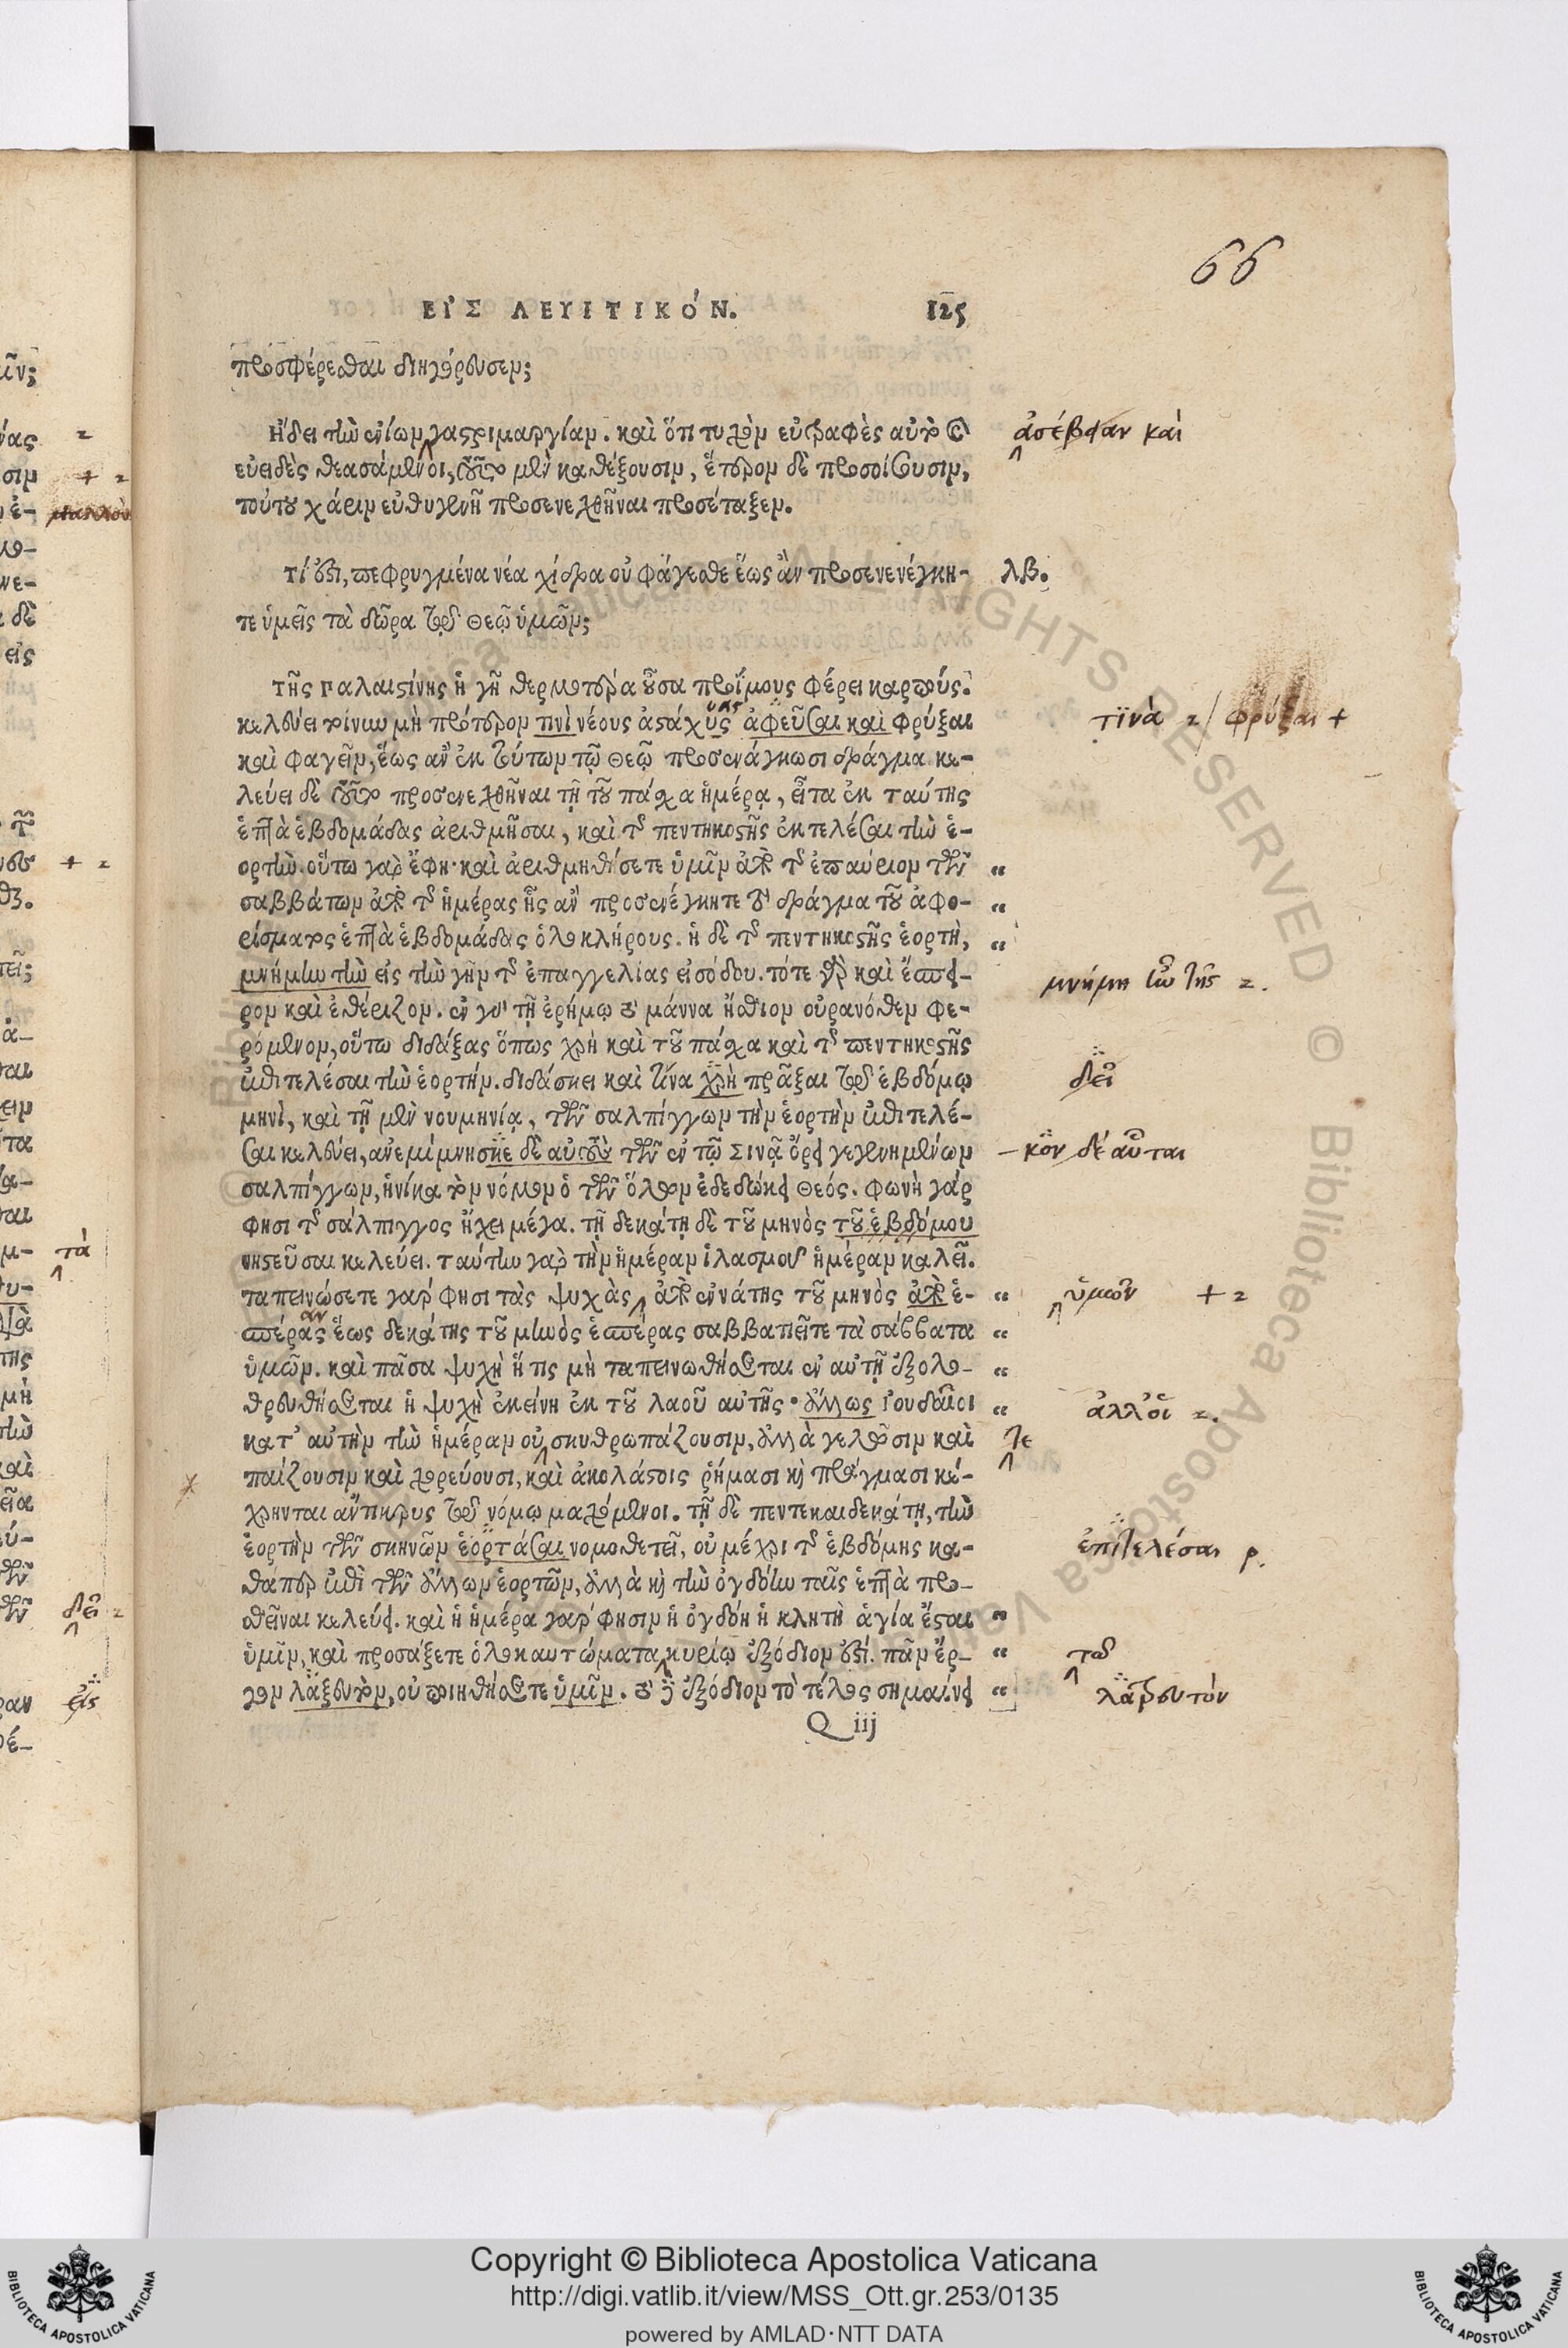 66
ΕἸΣ ΛΕΥΙΤΙΚΌΝ. 125
προσφέρεσθαι διηγόρευσεν;
Ἤδει τὴν ἐνίων γαστριμαργίαν. καὶ ὅτι τυχὸν εὐτραφὲς αὐτὸ καὶ ἀσέβειαν καὶ
εὐειδὲς θεασάμενοι, τοῦτο μὲν καθέξουσιν, ἕτερον δὲ προσοίσουσιν,
τούτου χάριν εὐθυγενῆ προσενεχθῆναι προσέταξεν.
τί ἐστι, πεφρυγμένα νέα χίδρα οὐ φάγεσθε ἕως ἂν προσενενέγκη- λβ.
τε ὑμεῖς τὰ δῶρα τῷ Θεῷ ὑμῶν;
τῆς Παλαιστίνης ἡ γῆ θερμοτέρα οὖσα πρωΐμους φέρει καρπούς.
κελεύει τοίνυν μὴ πρότερον τινὶ νέους ἀστάχυς ἀφεῦσαι καὶ φρύξαι τινὰ 2/ φρύξαι +
καὶ φαγεῖν, ἕως ἂν ἐκ τούτων τῷ Θεῷ προσενάγκωσι δράγμα. κε-
λεύει δὲ τοῦτο προσενεχθῆναι τῇ τοῦ πάσχα ἡμέρᾳ, εἶτα ἐκ ταύτης
ἑπτὰ ἑβδομάδας ἀριθμῆσαι, καὶ τῆς πεντηκοστῆς ἐκτελέσαι τὴν ἑ-
ορτήν. οὕτω γὰρ ἔφη· καὶ ἀριθμηθήσετε ὑμῖν ἀπὸ τῆς ἐπαύριον τῶν “
σαββάτων ἀπὸ τῆς ἡμέρας ἧς ἂν προσενέγκητε τὸ δράγμα τοῦ ἀφο- “
ρίσματος ἑπτὰ ἑβδομάδας ὁλοκλήρους. ἡ δὲ τῆς πεντηκοστῆς ἑορτὴ, “
μνήμην τὴν εἰς τὴν γῆν τῆς ἐπαγγελίας εἰσόδου. τότε γὰρ καὶ ἔσπει- μνήμη ἦν τῆς 2.
ρον καὶ ἐθέριζον. ἐν γὰρ τῇ ἐρήμῳ τὸ μάννα ἤσθιον οὐρανόθεν φε-
ρόμενον, οὕτω διδάξας ὅπως χρὴ καὶ τοῦ πάσχα καὶ τῆς πεντηκοστῆς
ἐπιτελέσαι τὴν ἑορτήν. διδάσκει καὶ τίνα χρὴ πρᾶξαι τῷ ἑβδόμῳ δεῖ
μηνὶ, καὶ τῇ μὲν νουμηνίᾳ, τῶν σαλπίγγων τὴν ἑορτὴν ἐπιτελέ-
σαι κελεύει, ἀνεμίμνησκε δὲ αὐτοὺς τῶν ἐν τῷ Σινᾷ ὄρει γεγενημένων – κον δέ αὗται
σαλπίγγων, ἡνίκα τὸν νόμον ὁ τῶν ὅλων ἐδεδώκει Θεός. φωνὴ γάρ
φησι τῆς σάλπιγγος ἤχει μέγα. τῇ δεκάτῃ δὲ τοῦ μηνὸς τοῦ ἑβδόμου
νηστεῦσαι κελεύει. ταύτην γὰρ τὴν ἡμέραν ἱλασμοῦ ἡμέραν καλεῖ.
ταπεινώσετε γάρ φησι τὰς ψυχὰς, ἀπὸ ἐννάτης τοῦ μηνὸς ἀπὸ ἑ- “ ὑμῶν + 2
σπέρας ἕως δεκάτης τοῦ μηνὸς ἑσπέρας σαββατιεῖτε τὰ σάββατα “
ὑμῶν. καὶ πᾶσα ψυχὴ ἥτις μὴ ταπεινωθήσεται ἐν αὐτῇ ἐξολο- “
θρευθήσεται ἡ ψυχὴ ἐκείνη ἐκ τοῦ λαοῦ αὐτῆς· ἄλλως ἰουδαῖοι “ ἀλλ' οἱ 2.
κατ' αὐτὴν τὴν ἡμέραν οὐ σκυθρωπάζουσιν, ἀλλὰ γελῶσιν καὶ τε
παίζουσιν καὶ χορεύουσι, καὶ ἀκολάστοις ῥήμασι καὶ πράγμασι κέ-
χρηνται ἄντικρυς τῷ νόμῳ μαχόμενοι. τῇ δὲ πεντεκαιδεκάτῃ, τὴν
ἑορτὴν τῶν σκηνῶν ἑορτάσαι νομοθετεῖ, οὐ μέχρι τῆς ἑβδόμης κα- ἐπιτελέσαι ρ.
θάπερ ἐπὶ τῶν ἄλλων ἑορτῶν, ἀλλὰ καὶ τὴν ὀγδόην ταῖς ἑπτὰ προ-
θεῖναι κελεύει. καὶ ἡ ἡμέρα γάρ φησιν ἡ ὀγδόη ἡ κλητὴ ἁγία ἔσται “
ὑμῖν, καὶ προσάξετε ὁλοκαυτώματα κυρίῳ ἐξόδιον ἐστί. πᾶν ἔρ- “ τῷ
γον λαξευτὸν, οὐ ποιηθήσεται ὑμῖν. τὸ γὰρ ἐξόδιον τὸ τέλος σημαίνει “ λατρευτόν
Q iij
Copyright © Biblioteca Apostolica Vaticana
http://digi.vatlib.it/view/MSS_Ott.gr.253/0135
powered by AMLAD·NTT DATA